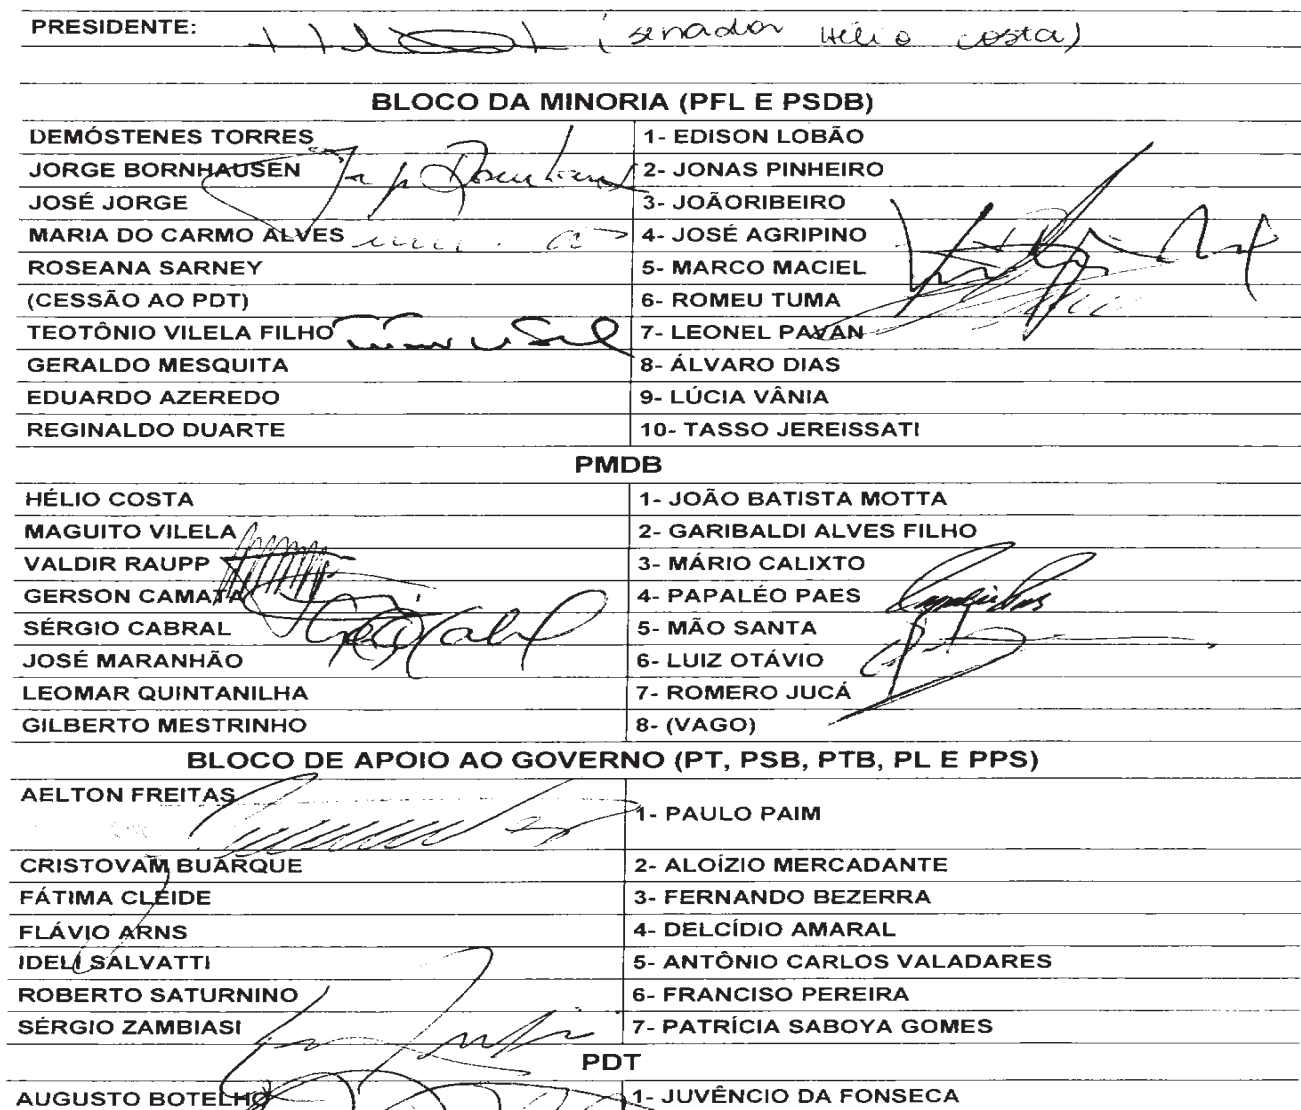 PRESIDENTE: (senador Hélio Costa)
BLOCO DA MINORIA (PFL E PSDB)
DEMÓSTENES TORRES 1- EDISON LOBÃO
JORGE BORNHAUSEN 2- JONAS PINHEIRO
JOSÉ JORGE 3- JOÃORIBEIRO
MARIA DO CARMO ALVES 4- JOSÉ AGRIPINO
ROSEANA SARNEY 5- MARCO MACIEL
(CESSÃO AO PDT) 6- ROMEU TUMA
TEOTÔNIO VILELA FILHO 7- LEONEL PAVAN
GERALDO MESQUITA 8- ÁLVARO DIAS
EDUARDO AZEREDO 9- LÚCIA VÂNIA
REGINALDO DUARTE 10- TASSO JEREISSATI
PMDB
HÉLIO COSTA 1- JOÃO BATISTA MOTTA
MAGUITO VILELA 2- GARIBALDI ALVES FILHO
VALDIR RAUPP 3- MÁRIO CALIXTO
GERSON CAMATA 4- PAPALÉO PAES
SÉRGIO CABRAL 5- MÃO SANTA
JOSÉ MARANHÃO 6- LUIZ OTÁVIO
LEOMAR QUINTANILHA 7- ROMERO JUCÁ
GILBERTO MESTRINHO 8- (VAGO)
BLOCO DE APOIO AO GOVERNO (PT, PSB, PTB, PL E PPS)
AELTON FREITAS 1- PAULO PAIM
CRISTOVAM BUARQUE 2- ALOÍZIO MERCADANTE
FÁTIMA CLEIDE 3- FERNANDO BEZERRA
FLÁVIO ARNS 4- DELCÍDIO AMARAL
IDELI SALVATTI 5- ANTÔNIO CARLOS VALADARES
ROBERTO SATURNINO 6- FRANCISO PEREIRA
SÉRGIO ZAMBIASI 7- PATRÍCIA SABOYA GOMES
PDT
AUGUSTO BOTELHO 1- JUVÊNCIO DA FONSECA